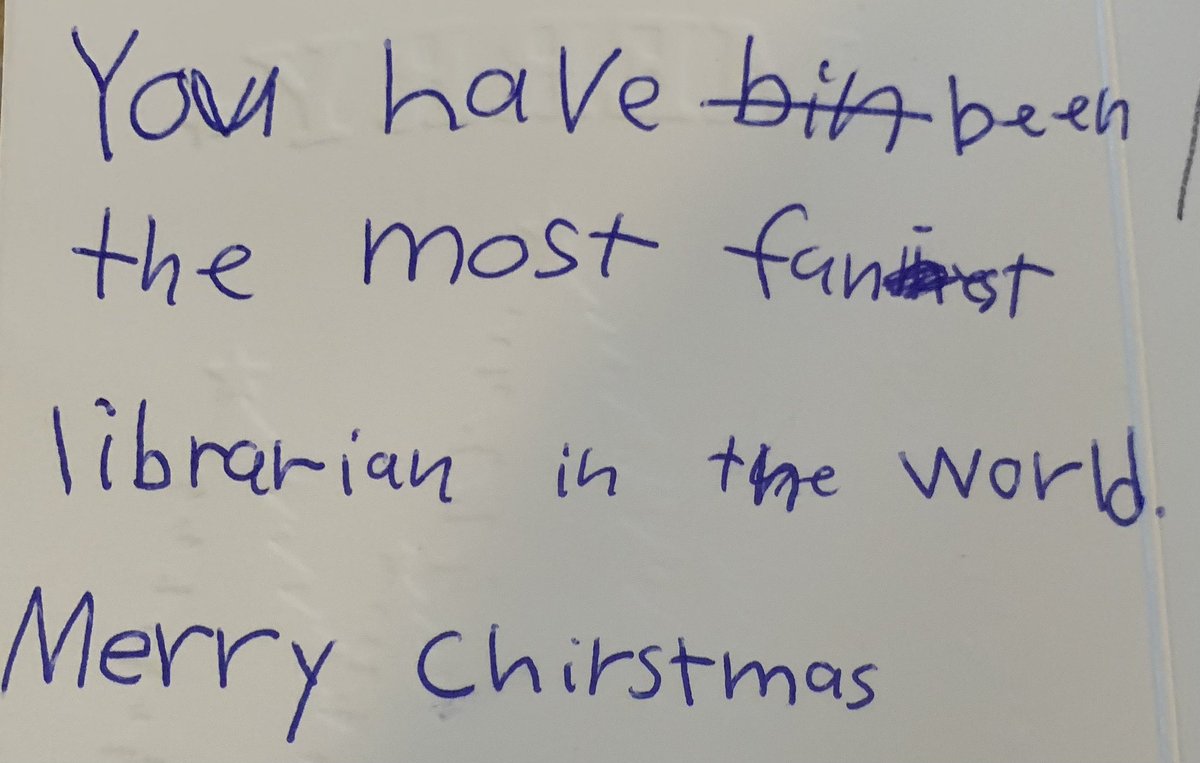 You have bin been
the most faniest
librarian in the world.
Merry Chirstmas